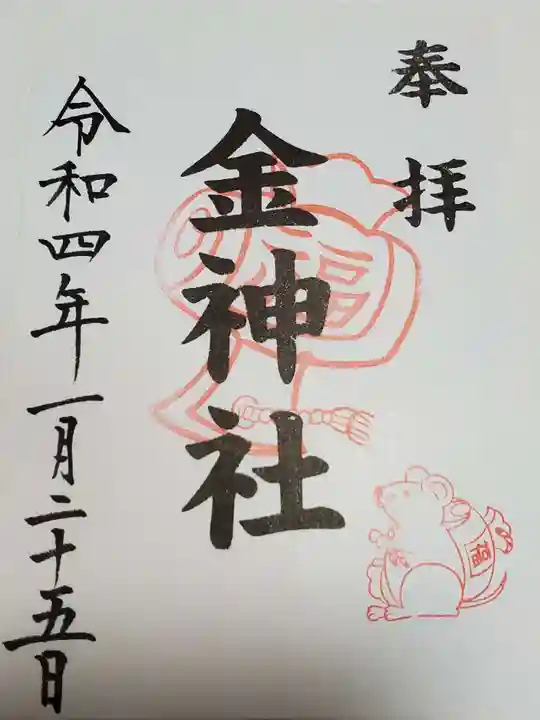 奉拝
金神社
令和四年一月二十五日